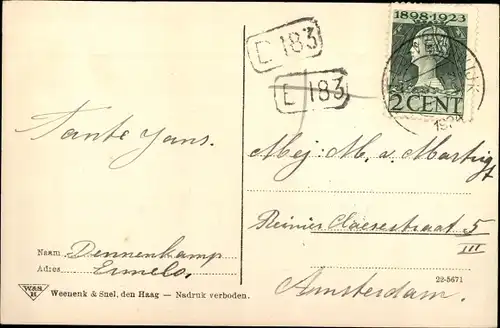 1898-1923
2 CENT
E 183
E 183
Tante Jans.
Mej: M. v. Martigt
Reinier Claesestraat 5
III
Amsterdam.
Naam Dennenkamp
Adres Ermelo.
22-5671
WAS
H
Weenenk & Snel, den Haag — Nadruk verboden.